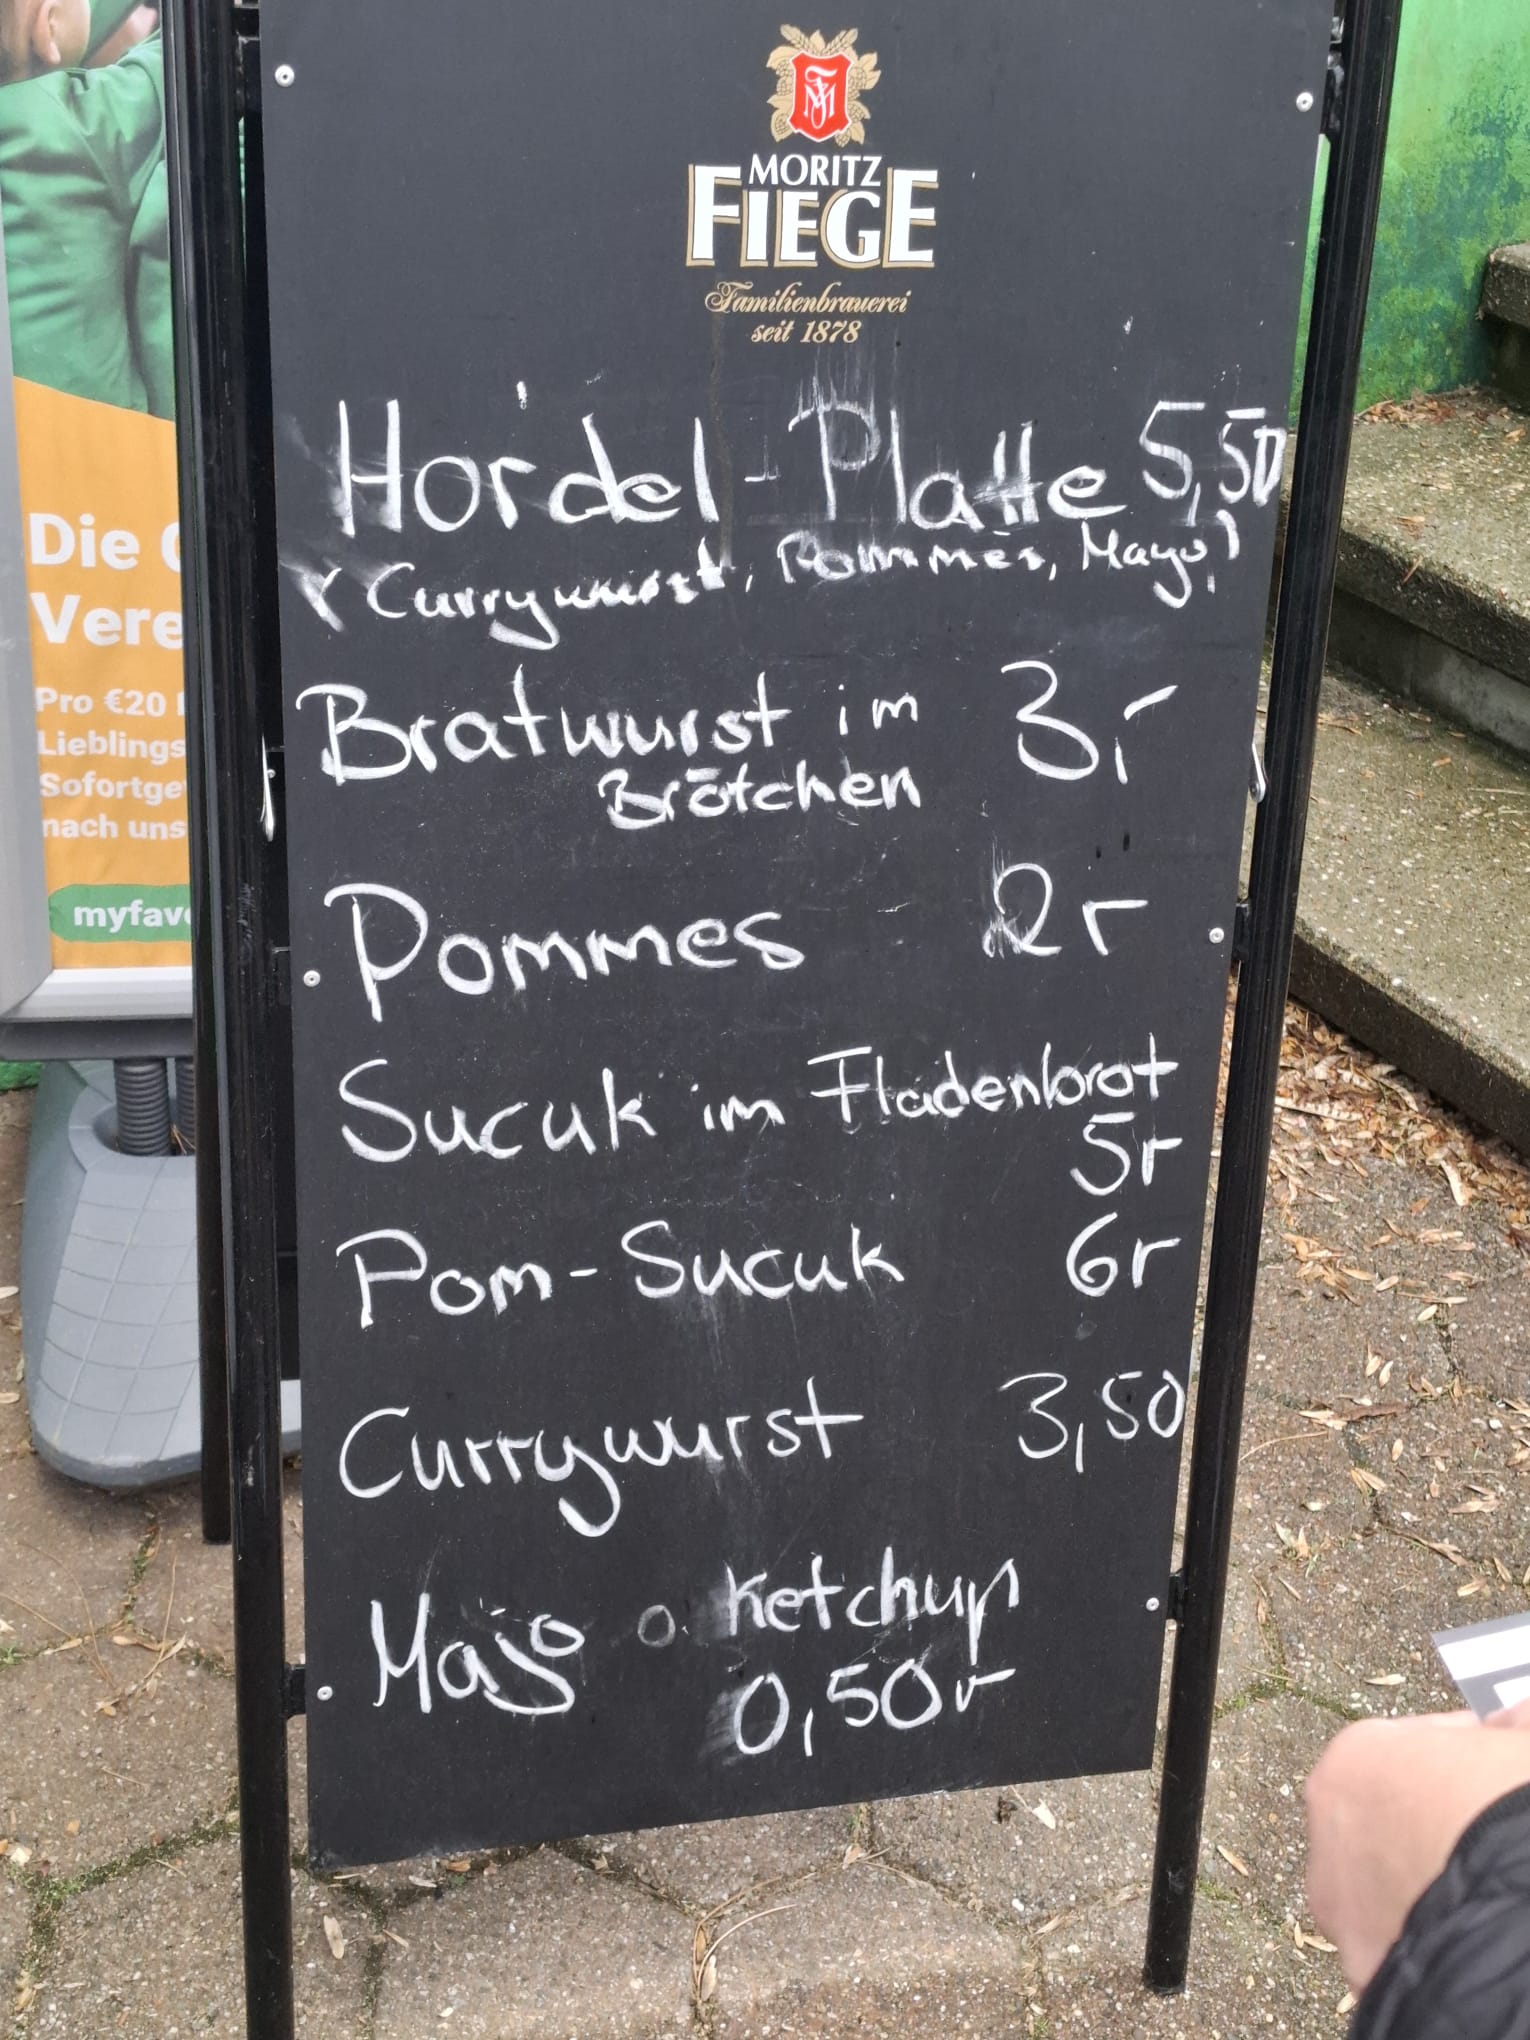 MORITZ
FIEGE
Familienbrauerei
seit 1878
Hordel-Platte 5,50
(Currywurst, Pommes, Mayo)
Bratwurst im 3,-
Brötchen
Pommes 2,-
Sucuk im Fladenbrot
5,-
Pom-Sucuk 6,-
Currywurst 3,50
Majo o. Ketchup
0,50,-
Die
Vere
Pro €20
Lieblings
Sofortge
nach uns
myfav